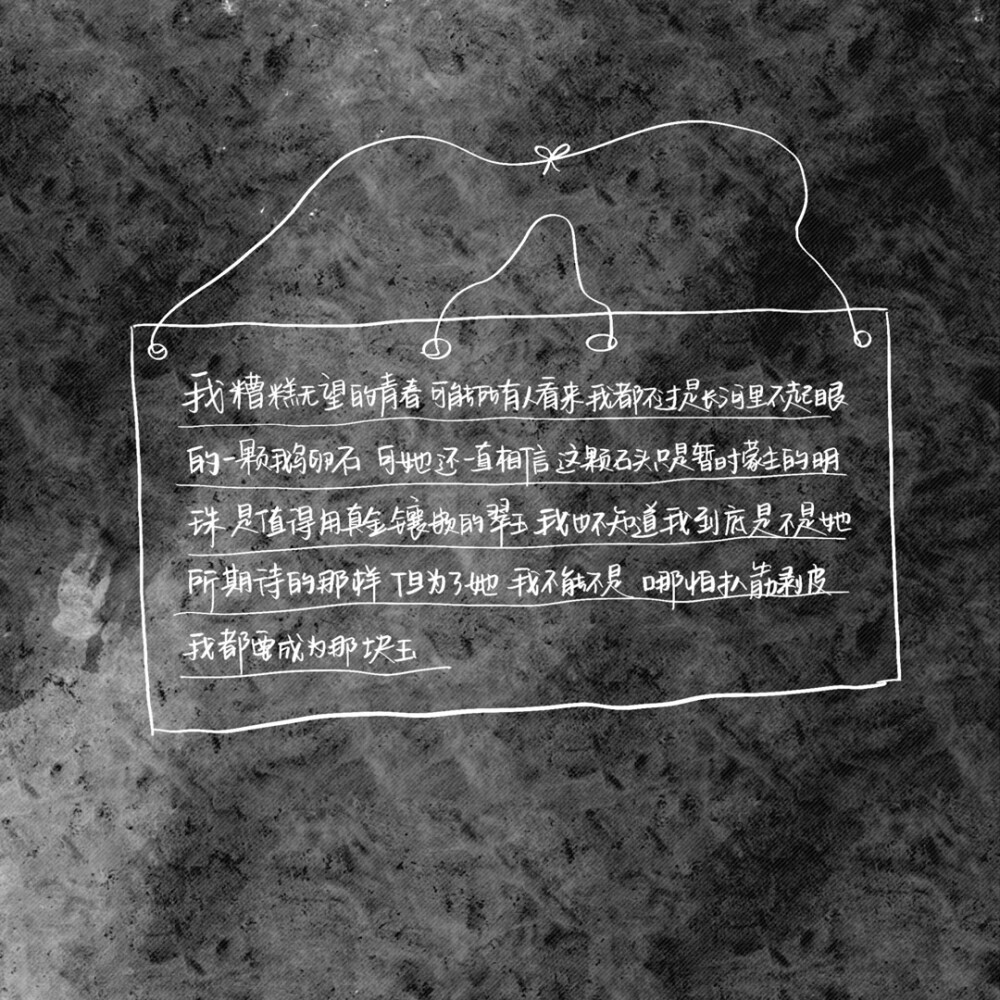 我糟糕无望的青春 可能所有人看来 我都不过是长河里不起眼
的一颗鹅卵石 可她还一直相信 这颗石头只是暂时蒙尘的明
珠 是值得用真金镶嵌的翠玉 我也不知道我到底是不是她
所期待的那样 但为了她 我不能不是 哪怕扒筋剥皮
我都要成为那块玉